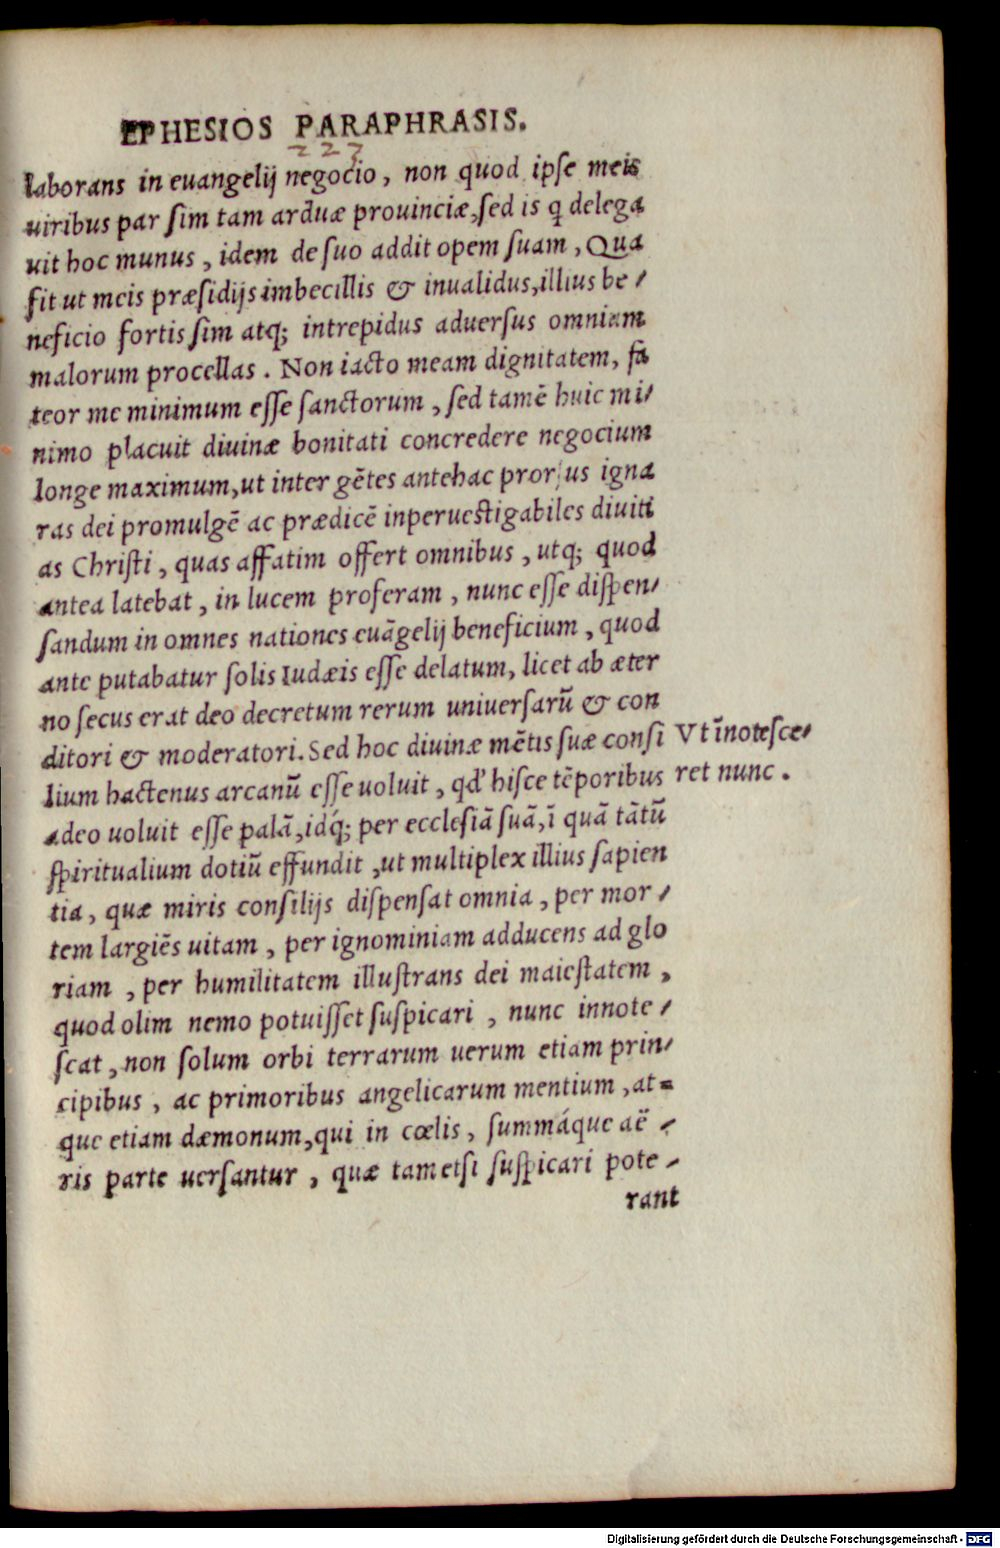 EPHESIOS PARAPHRASIS.
223
laborans in euangelij negocio, non quod ipse meis
uiribus par sim tam arduæ prouinciæ, sed is q̃ delega
uit hoc munus, idem de suo addit opem suam, Qua
fit ut meis præsidijs imbecillis & inualidus, illius be-
neficio fortis sim atq; intrepidus aduersus omniam
malorum procellas. Non iacto meam dignitatem, fa
teor me minimum esse sanctorum, sed tamē huic mi-
nimo placuit diuinæ bonitati concredere negocium
longe maximum, ut inter gētes antehac prorsus igna
ras dei promulgē ac prædicē inperuestigabiles diuiti
as Christi, quas affatim offert omnibus, utq; quod
antea latebat, in lucem proferam, nunc esse dispen-
sandum in omnes nationes euāgelij beneficium, quod
ante putabatur solis Iudæis esse delatum, licet ab æter
no secus erat deo decretum rerum uniuersarū & con
ditori & moderatori. Sed hoc diuinæ mētis suæ consi
Vt īnotesce-
lium hactenus arcanū esse uoluit, qd' hisce tēporibus
ret nunc.
adeo uoluit esse palā, idq́; per ecclesiā suā, ī quā tātū
spiritualium dotiū effundit, ut multiplex illius sapien
tia, quæ miris consilijs dispensat omnia, per mor-
tem largiēs uitam, per ignominiam adducens ad glo
riam, per humilitatem illustrans dei maiestatem,
quod olim nemo potuisset suspicari, nunc innote-
scat, non solum orbi terrarum uerum etiam prin-
cipibus, ac primoribus angelicarum mentium, at-
que etiam dæmonum, qui in cœlis, summáque aë-
ris parte uersantur, quæ tametsi suspicari pote-
rant
Digitalisierung gefördert durch die Deutsche Forschungsgemeinschaft - DFG